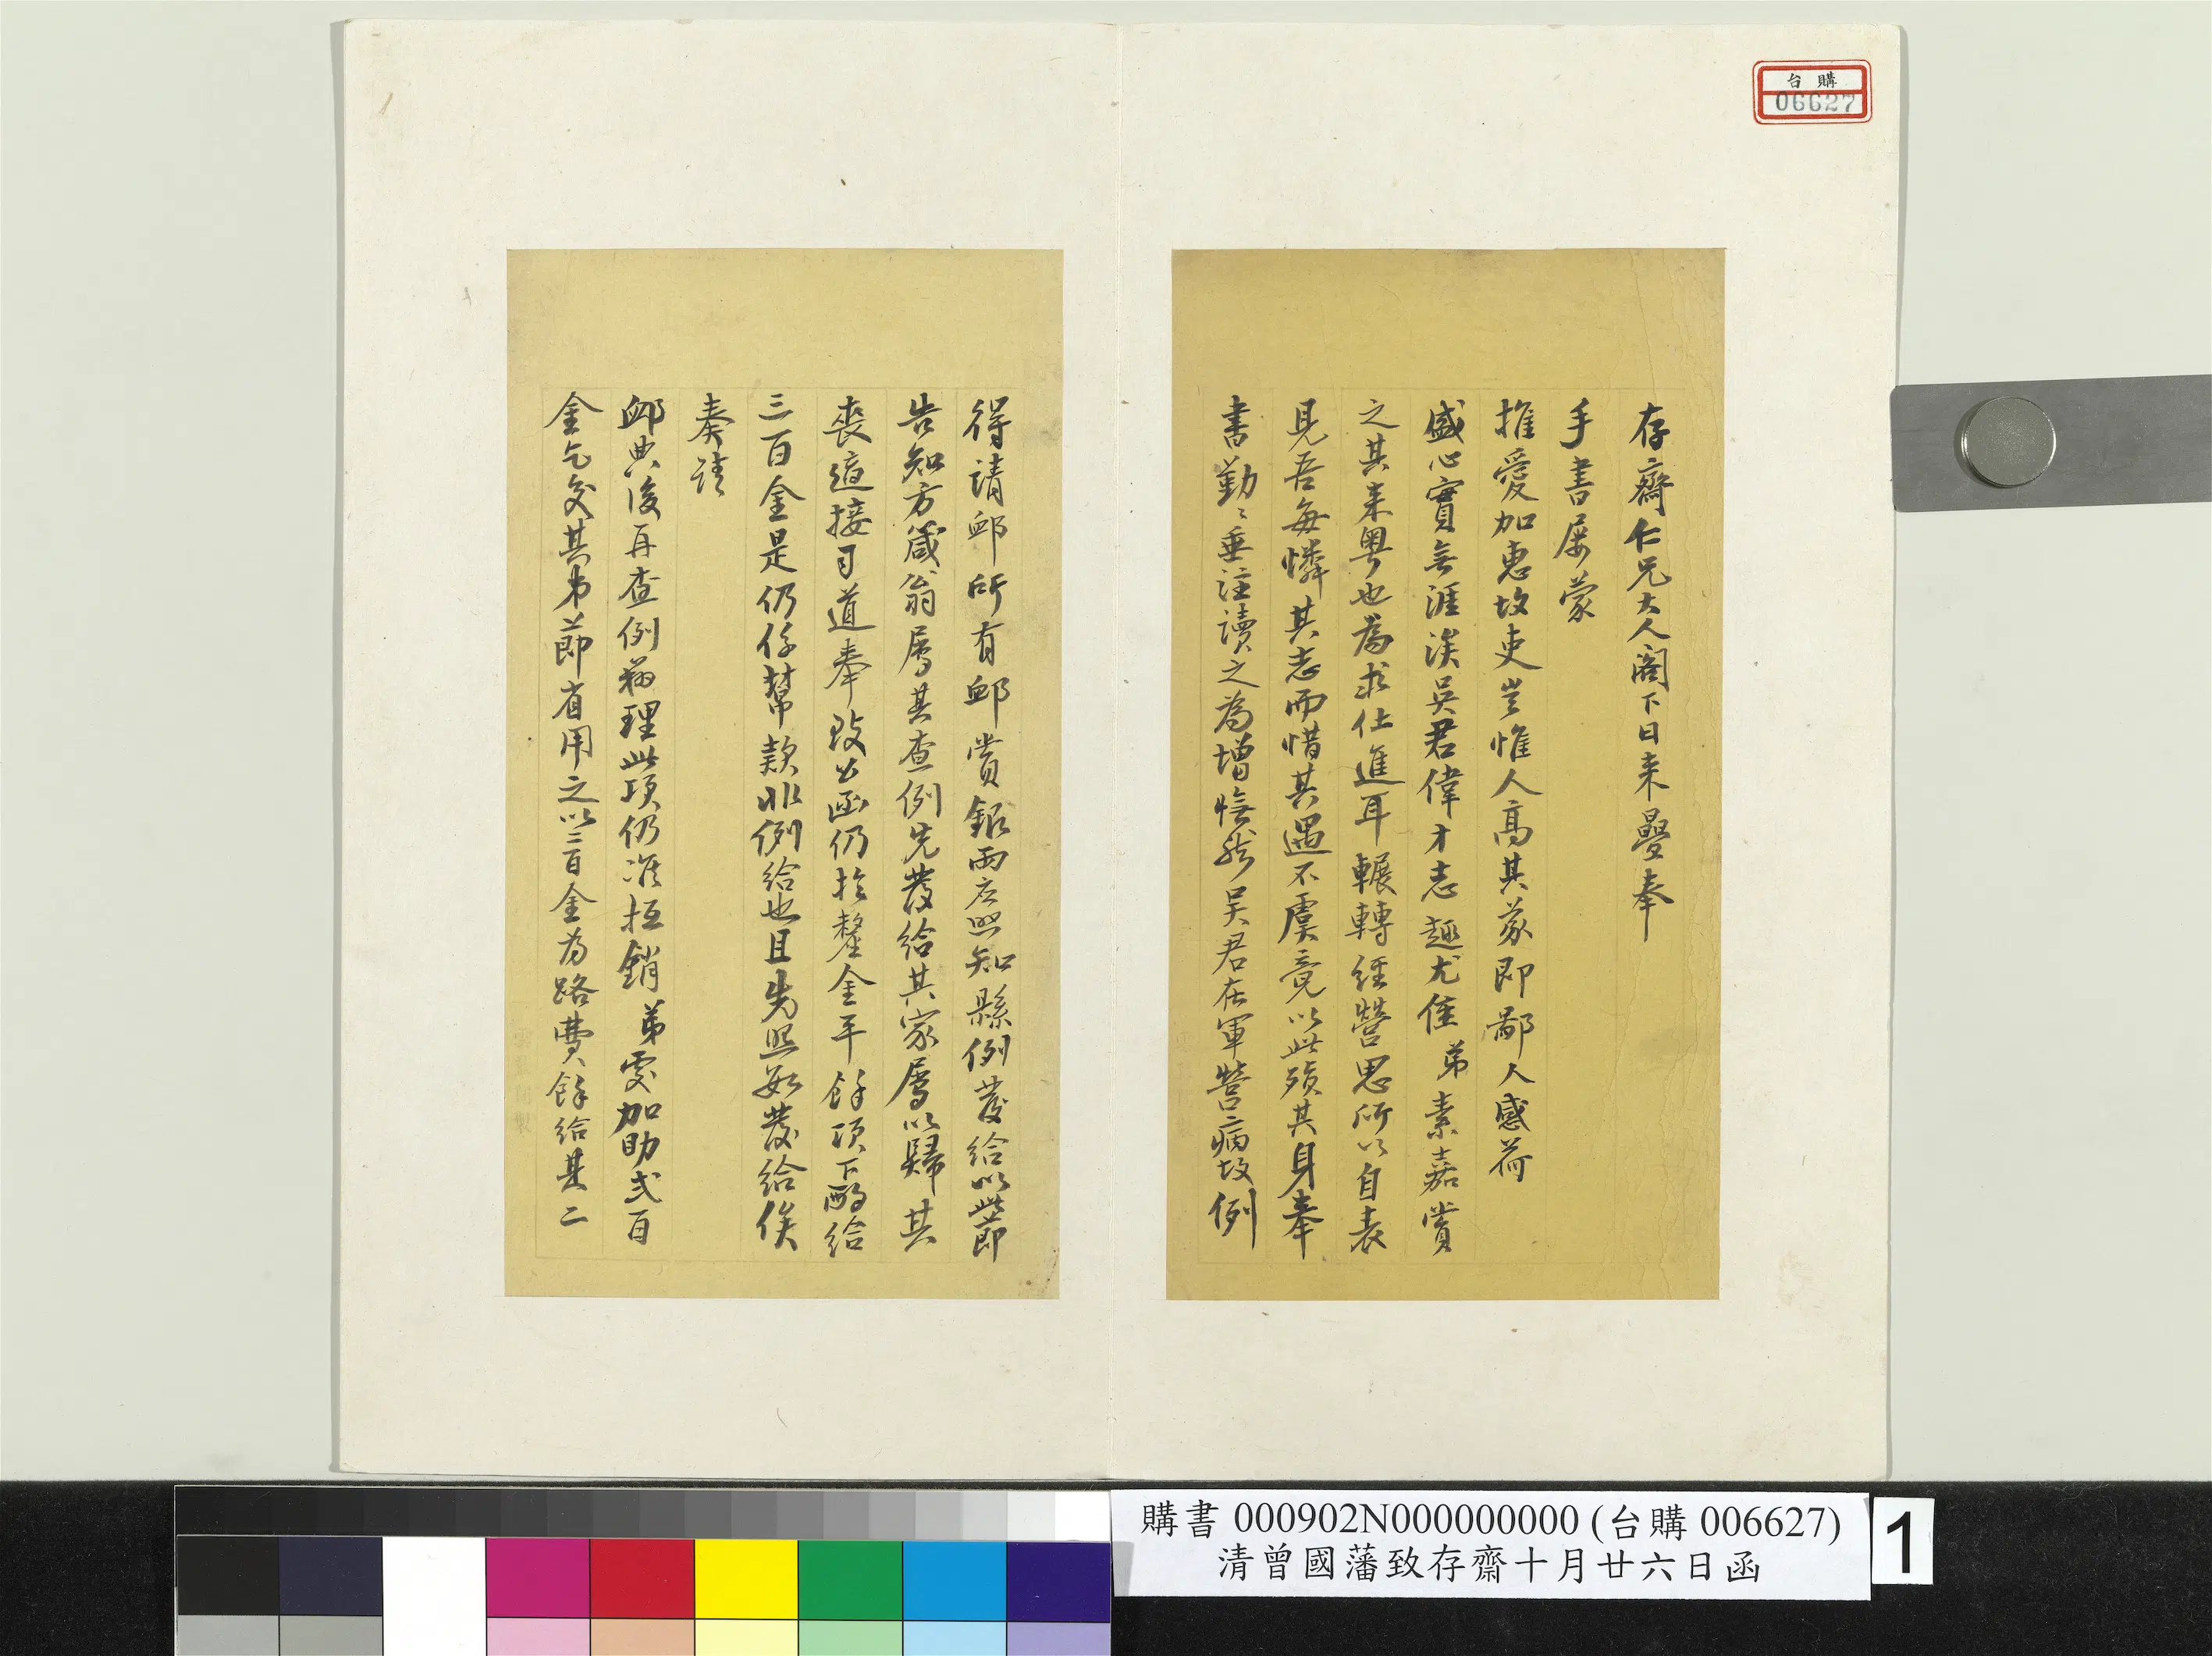 台購
06627
存齋仁兄大人閣下日來疊奉
手書屢蒙
推愛加惠故吏豈惟人高其義即鄙人感荷
盛心實無涯涘吳君偉才志趣尤佳弟素嘉賞
之其來粵也為求仕進耳輾轉經營思所以自表
見吾每憐其志而惜其遇不虞竟以此殞其身奉
書勤〻垂注讀之為增憮然吳君在軍營病故例
得請卹所有卹賞銀兩應照知縣例發給以此節
告知方箴翁屬其查例先發給其家屬以歸其
喪適接司道奉致公函仍於釐金平餘項下酌給
三百金是仍係幫款非例給也且先照數發給俟
奏請
卹典後再查例辦理此項仍准抵銷弟處加助弍百
金乞交其弟節省用之以二百金為路費餘給其二
購書 000902N000000000 (台購 006627)
清曾國藩致存齋十月廿六日函
1